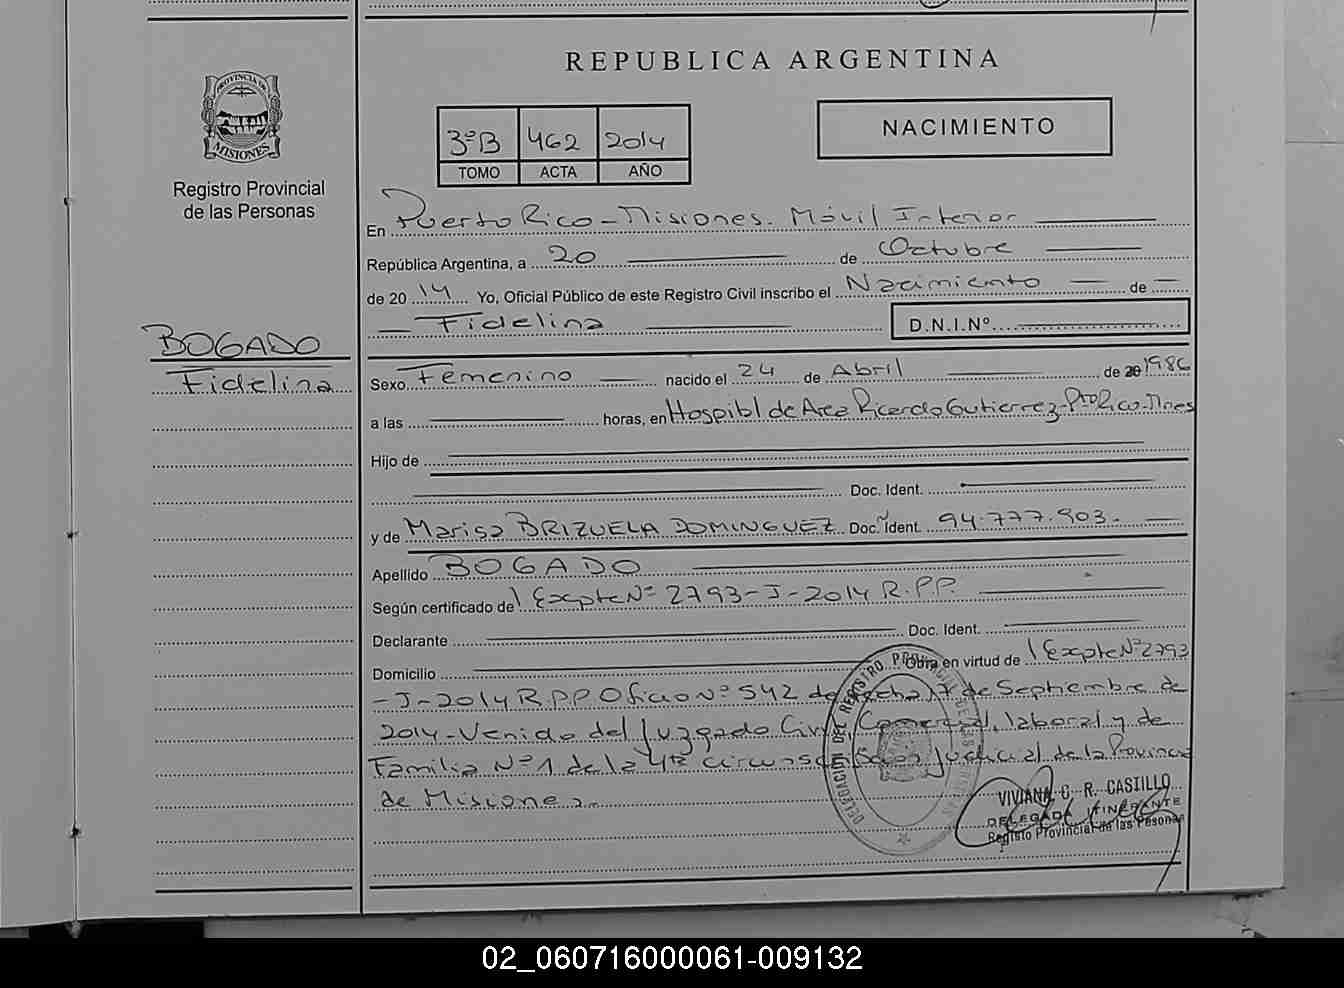 REPUBLICA ARGENTINA
PROVINCIA DE
MISIONES
Registro Provincial
de las Personas
3ºB 462 2014
TOMO ACTA AÑO
NACIMIENTO
En Puerto Rico - Misiones. Móvil Interior
República Argentina, a 20 de Octubre
de 20 14 Yo, Oficial Público de este Registro Civil inscribo el Nacimiento de
Fidelina
D.N.I.Nº
BOGADO
Fidelina
Sexo Femenino nacido el 24 de Abril de 20 1986
a las horas, en Hospital de Area Ricardo Gutierrez - Pto Rico - Mnes
Hijo de
Doc. Ident.
y de Marisa BRIZUELA DOMINGUEZ Doc. Ident. 94.777.903.
Apellido BOGADO
Según certificado de Expte Nº 2793-J-2014 R.P.P.
Declarante Doc. Ident.
Domicilio Obra en virtud de Expte Nº 2793
-J-2014 R.P.P. Oficio Nº 542 de fecha 17 de Septiembre de
2014 - Venido del Juzgado Civil, Comercial, laboral y de
Familia Nº 1 de la 4ta circunscripción Judicial de la Provincia
de Misiones.
DELEGACION DEL REGISTRO PROVINCIAL DE LAS PERSONAS
VIVIANA C. R. CASTILLO
DELEGADA ITINERANTE
Registo Provincial de las Pesonas
02_060716000061-009132